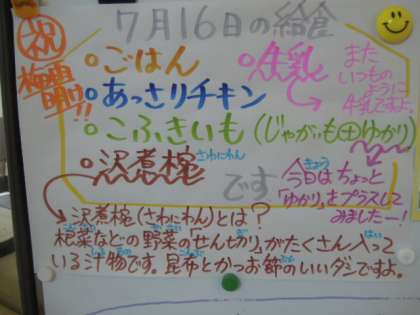 7月16日の給食
祝
梅雨
明け!!
・ごはん
・牛乳
また
いつもの
ように
牛乳ですよ
・あっさりチキン
・こふきいも(じゃがいも+ゆかり)
・沢煮椀 さわにわん
です
今日はちょっと
きょう
「ゆかり」をプラスして
みましたー!
沢煮椀(さわにわん)とは?
根菜などの野菜の「せんぎり」がたくさん入って
いる汁物です。昆布とかつお節のいいダシですよ。